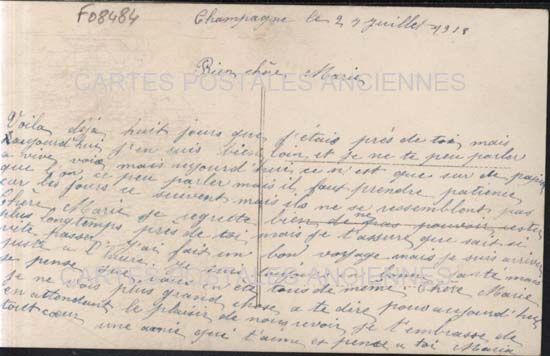 F08484
Champagne le 27 Juillet 1918
Bien chère Marie
CARTES POSTALES ANCIENNES
Voila déjà huit jours que j'étais près de toi, mais
aujourd'hui j'en suis bien loin, et je ne te peu parler
a vive voix mais aujourd'hui, ce n'est que sur de papier
que l'on ce peu parler mais il faux prendre patience
car les jours ce suivent mais ils ne se ressemblent pas
Chère Marie je regrette bien de ne pas pouvoir rester
plus longtemps près de toi mais je t'assure que sait si
vite passer. J'ai fait un bon voyage mais je suis arrivée
juste a l'heure.
je pense que vous en été tous de même. Chère Marie
CARTES POSTALES ANCIENNES
je ne vois plus grand chose a te dire pour aujourd'hui
en attendant le plaisir de nous revoir je t'embrasse de
tout cœur une amie qui t'aime et pense a toi Maria